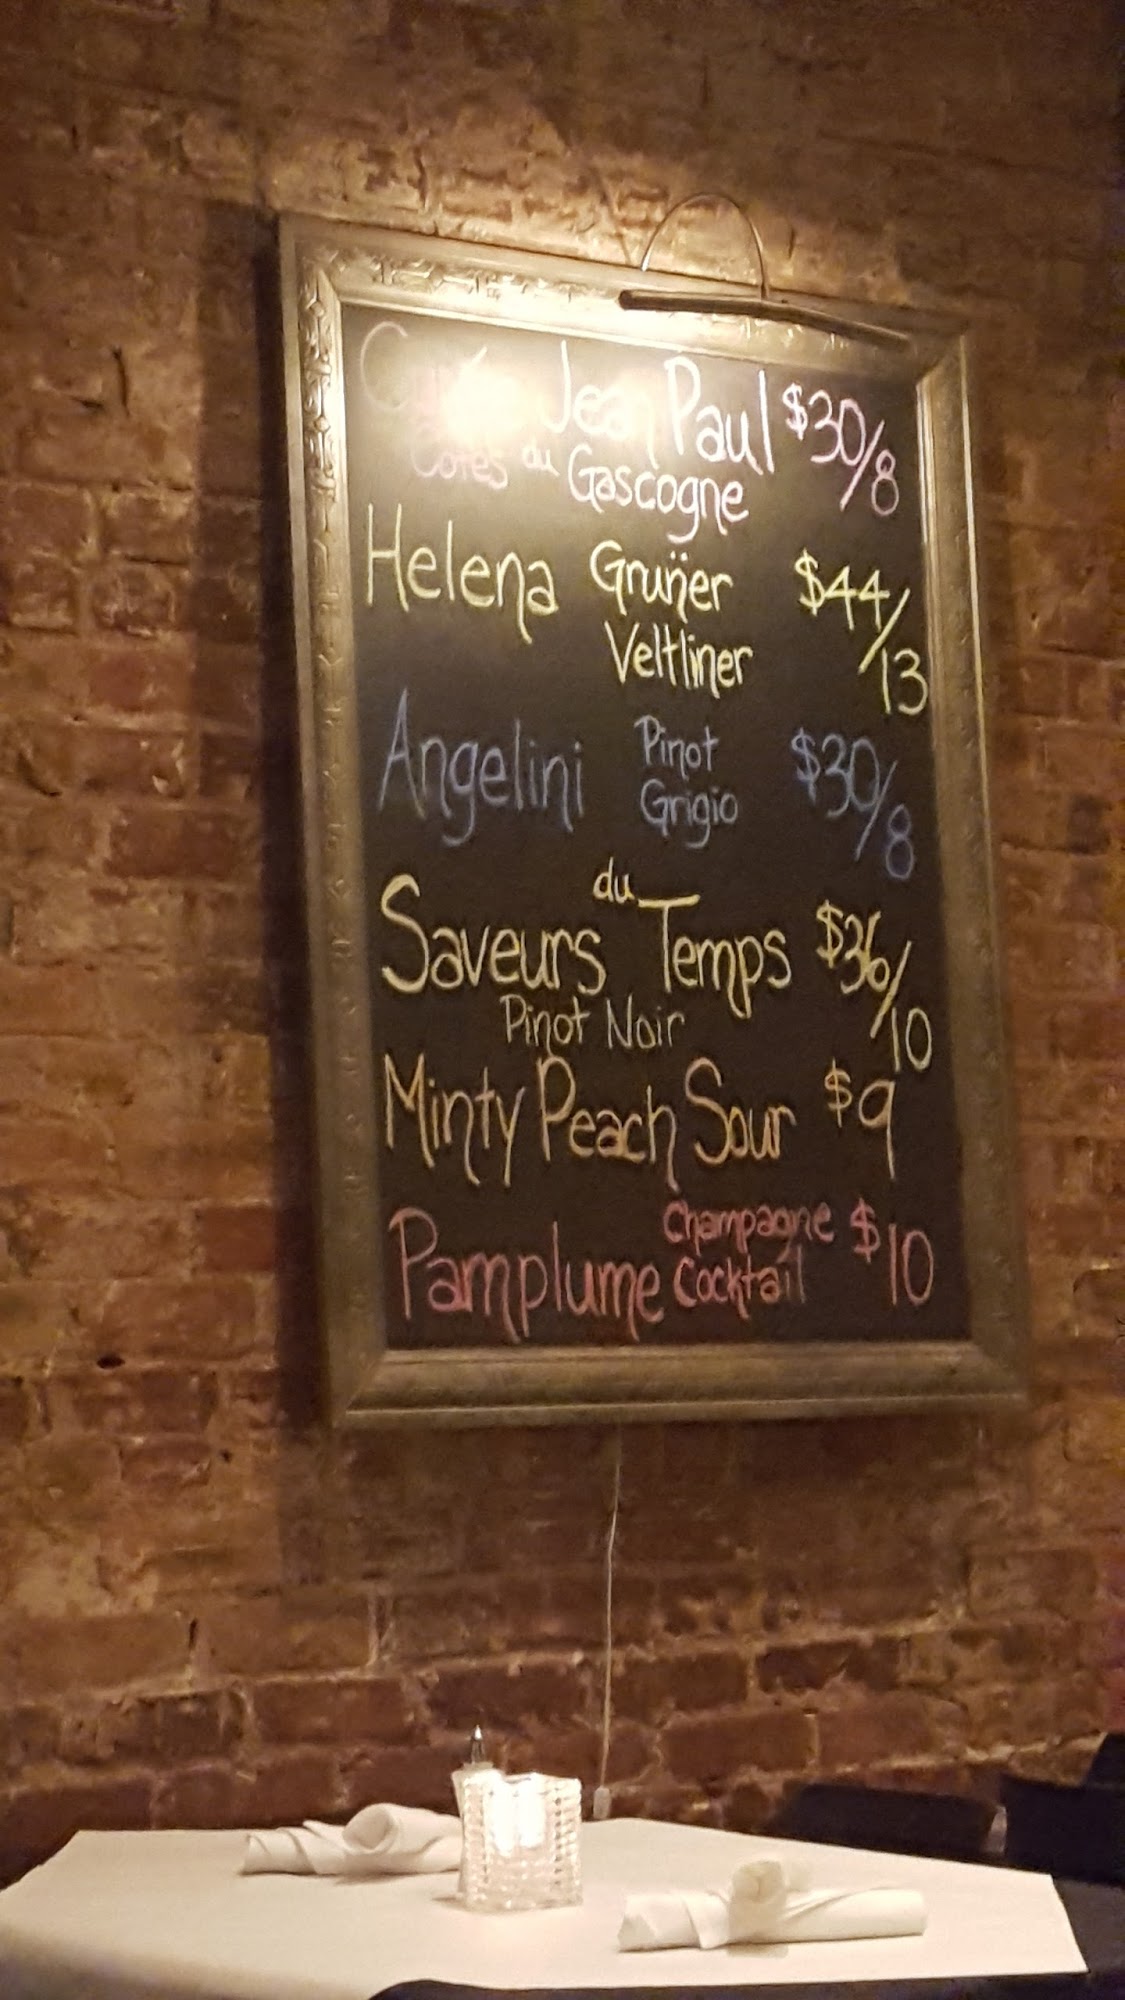 Jean Paul $30/8
Cotes du Gascogne
Helena Gruñer $44/13
Veltliner
Angelini Pinot Grigio $30/8
Saveurs du Temps $36/10
Pinot Noir
Minty Peach Sour $9
Pamplume Champagne Cocktail $10